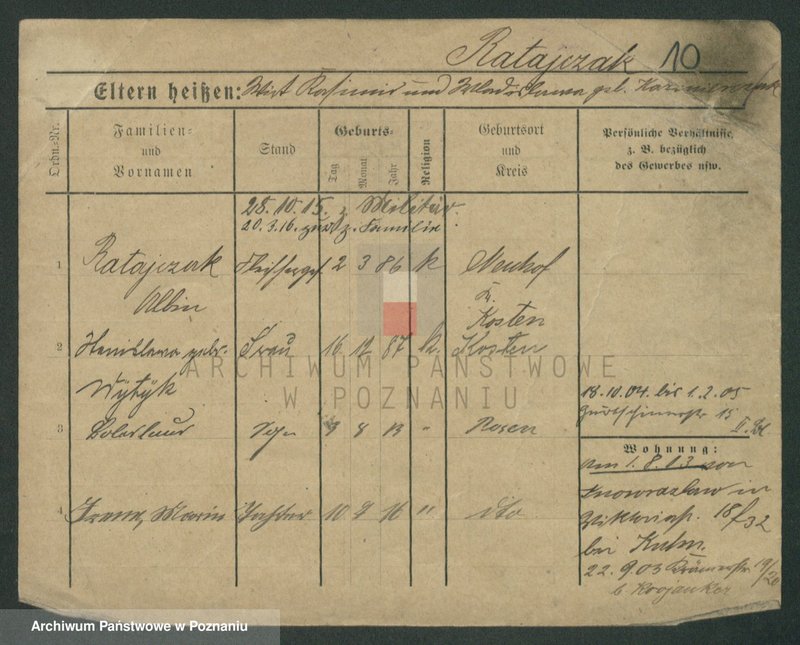 Ratajczak 10
Eltern heißen: Wirt Kasimir und Wladislawa geb. Kazmierczak
Ordn.-Nr.
Familien-
und
Vornamen
Stand
Geburts-
Tag
Monat
Jahr
Religion
Geburtsort
und
Kreis
Persönliche Verhältnisse,
z. B. bezüglich
des Gewerbes usw.
28.10.15. z. Militär.
20.3.16. zur z. Familie
1 Ratajczak Fleischerges 2 3 86 k Neuhof
Albin Kr.
Kosten
2 Stanislawa gebr. Frau 16 12 87 k. Kosten
Wÿtÿk
18.10.04. bis 1.2.05
15
3 Boleslaus Sohn 9 8 13 " Posen
II.
Wohnung:
am 1.8.03 von
Inowrazlaw in
Viktoriastr. 18/32
bei Kuhn.
4 Irene, Maria Tochter 10 9 16 " dto
22.9.03 Krämerstr 19/20
b
ARCHIWUM PAŃSTWOWE
W POZNANIU
Archiwum Państwowe w Poznaniu